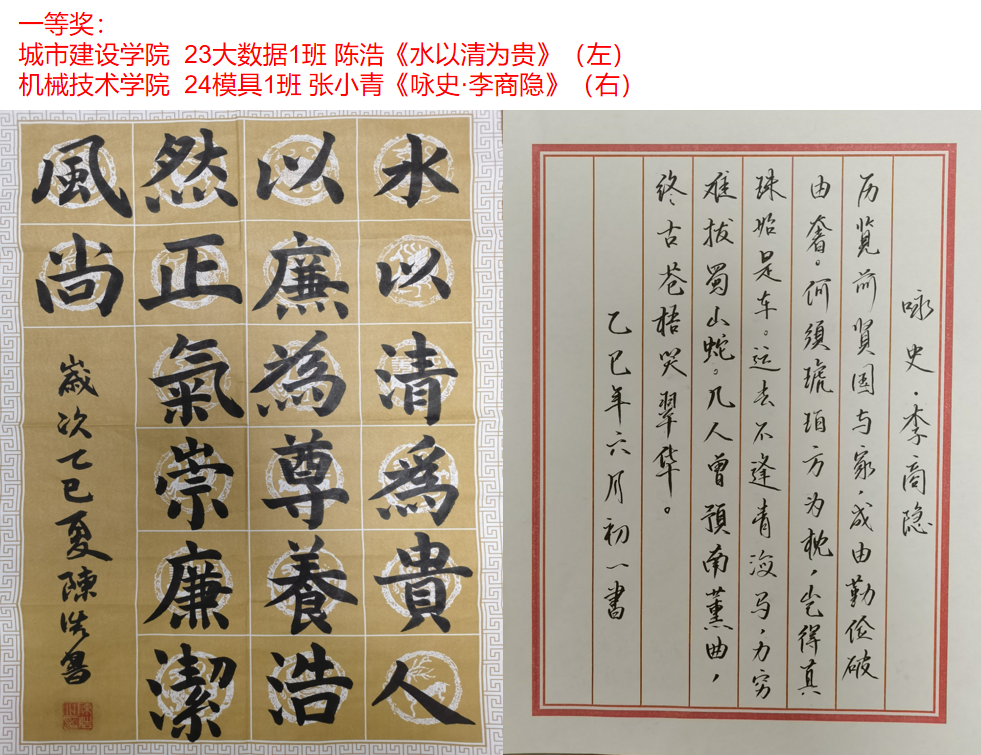 一等奖：
城市建设学院 23大数据1班 陈浩《水以清为贵》（左）
机械技术学院 24模具1班 张小青《咏史·李商隐》（右）
水以清爲貴人
以廉為尊養浩
然正氣崇廉潔
風尚
歲次乙巳夏陳浩書
咏史·李商隐
历览前贤国与家，成由勤俭破
由奢。何须琥珀方为枕，岂得真
珠始是车。运去不逢青海马，力穷
难拔蜀山蛇。几人曾预南薰曲，
终古苍梧哭翠华。
乙巳年六月初一書